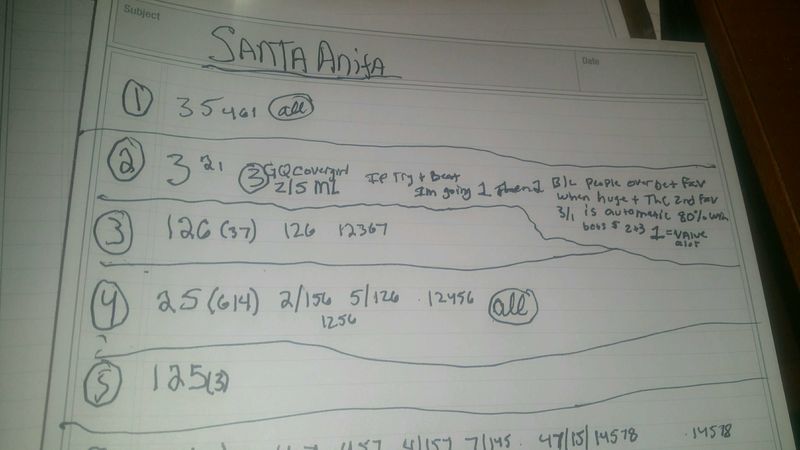 Subject
Date
SANTA AnitA
1 35461 all
2 3 21 3 GQ Covergirl 2/5 ML If Try + Beat Im going 1 then 2 B/c people over bet Fav
when huge + The 2nd fav
3/1 is automatic 80% win
bets 5 2+3 1 = value
alot
3 126 (37) 126 12367
4 25 (614) 2/156 5/126 .12456 all
1256
5 125 (3)
4/157 7/145 . 47/15/14578 .14578